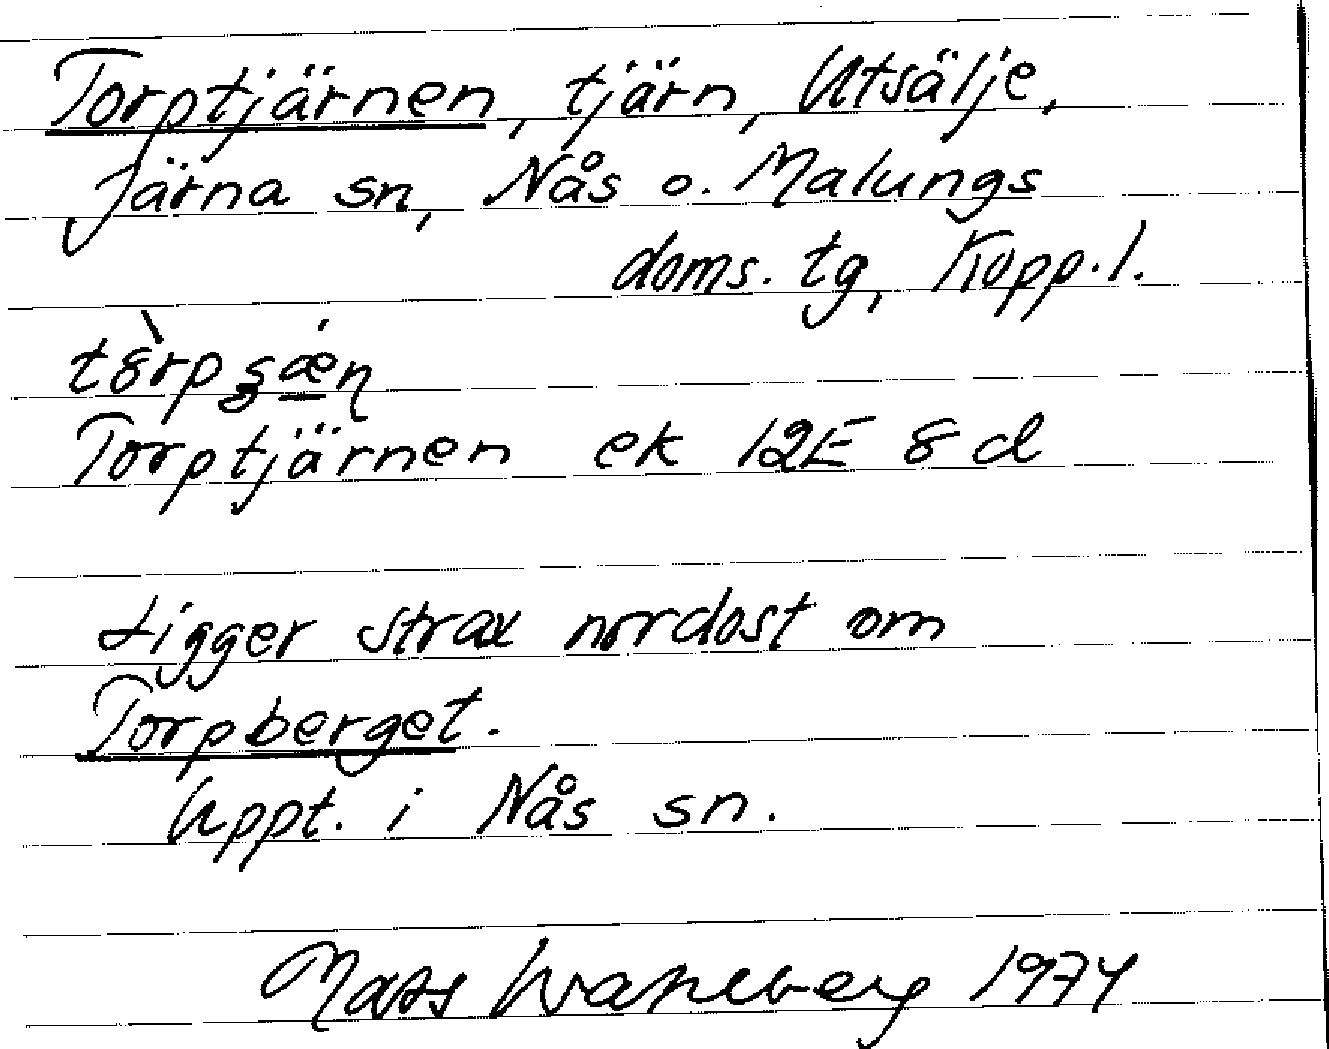 Torptjärnen, tjärn, Utsälje,
Järna sn, Nås o. Malungs
doms. tg, Kopp. l.
Torptjärnen ek 12E 8d
Ligger strax nordost om
Torpberget.
Uppt. i Nås sn.
Mats Wahlberg 1974